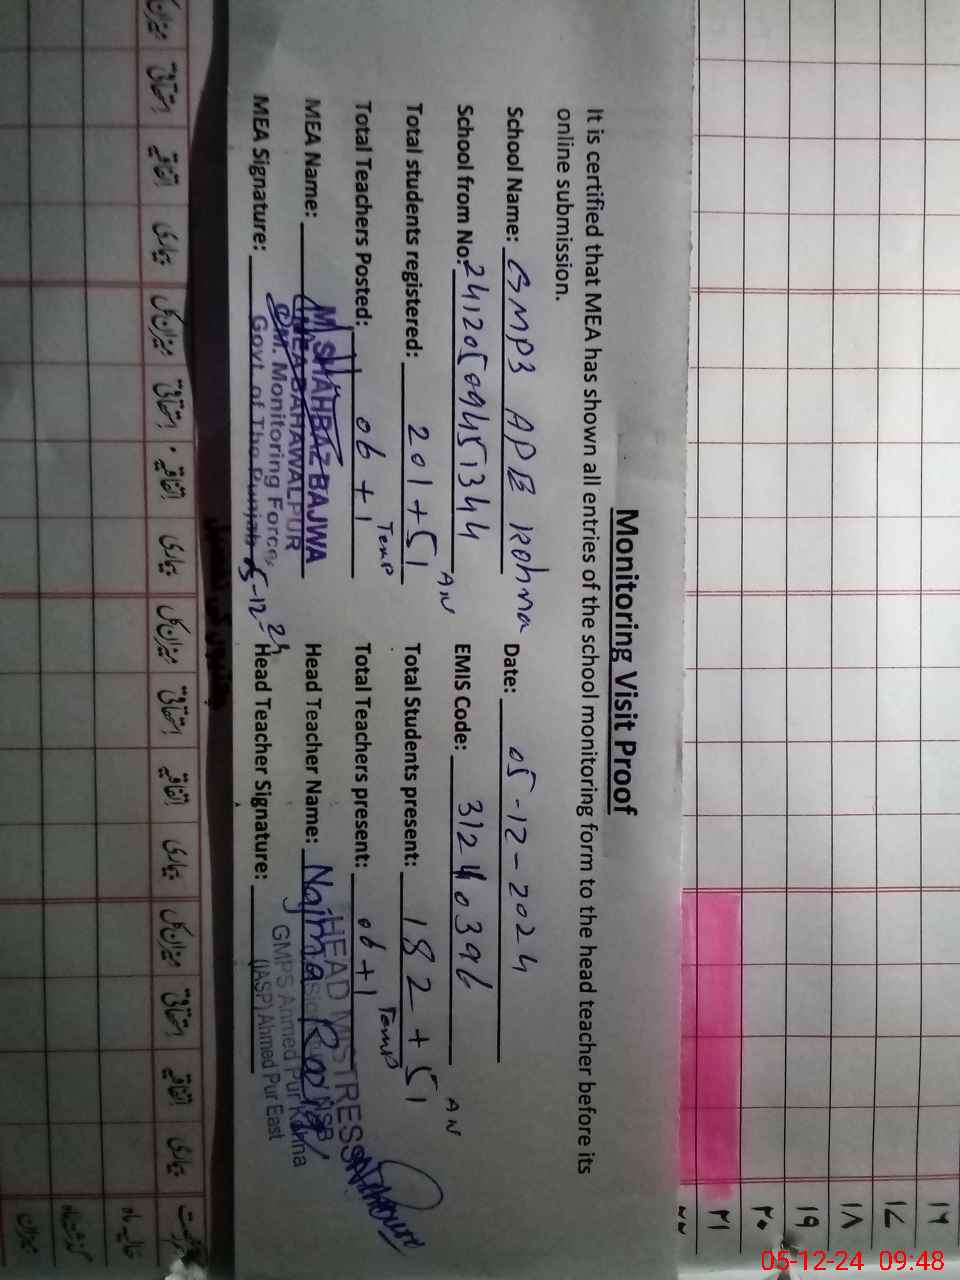 Monitoring Visit Proof
It is certified that MEA has shown all entries of the school monitoring form to the head teacher before its
online submission.
School Name: GMPS APE Kohna Date: 05-12-2024
School from No: 24120509451344 EMIS Code: 31240396
Total students registered: 201+51 AN Total Students present: 182+51 AN
Total Teachers Posted: 06+1 Temp Total Teachers present: 06+1 Temp
MEA Name: M SHAHBAZ BAJWA Head Teacher Name: Najma
MEA BAHAWALPUR
MEA Signature: 05-12-24 Head Teacher Signature:
C.M. Monitoring Force,
Govt. of The Punjab
HEAD MISTRESS
GMPS Ahmed Pur Kohna
(IASP) Ahmed Pur East
استحقاقیہ اتفاقیہ بیماری میزان کل استحقاقیہ اتفاقیہ بیماری میزان کل استحقاقیہ اتفاقیہ بیماری میزان کل استحقاقیہ اتفاقیہ بیماری
حالیہ ماہ
گزشتہ ماہ
میزان
۱۶
۱۷
۱۸
۱۹
۲۰
۲۱
۲۲
05-12-24 09:48